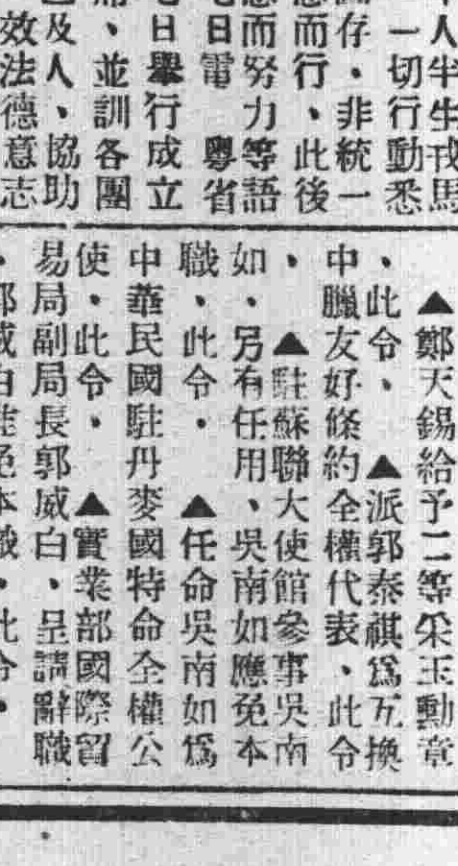 人半生戎馬
一切行動悉
存、非統一
而行、此後
而努力等語
日電　粵省
日舉行成立
、並訓各團
及人、協助
效法德意志
▲鄭天錫給予二等采玉勳章
、此令、　▲派郭泰祺爲互換
中臘友好條約全權代表、此令
、　▲駐蘇聯大使館參事吳南
如、另有任用、吳南如應免本
職、此令、　▲任命吳南如爲
中華民國駐丹麥國特命全權公
使、此令、　▲實業部國際貿
易局副局長郭威白、呈請辭職
、郭威白准免本職、此令、